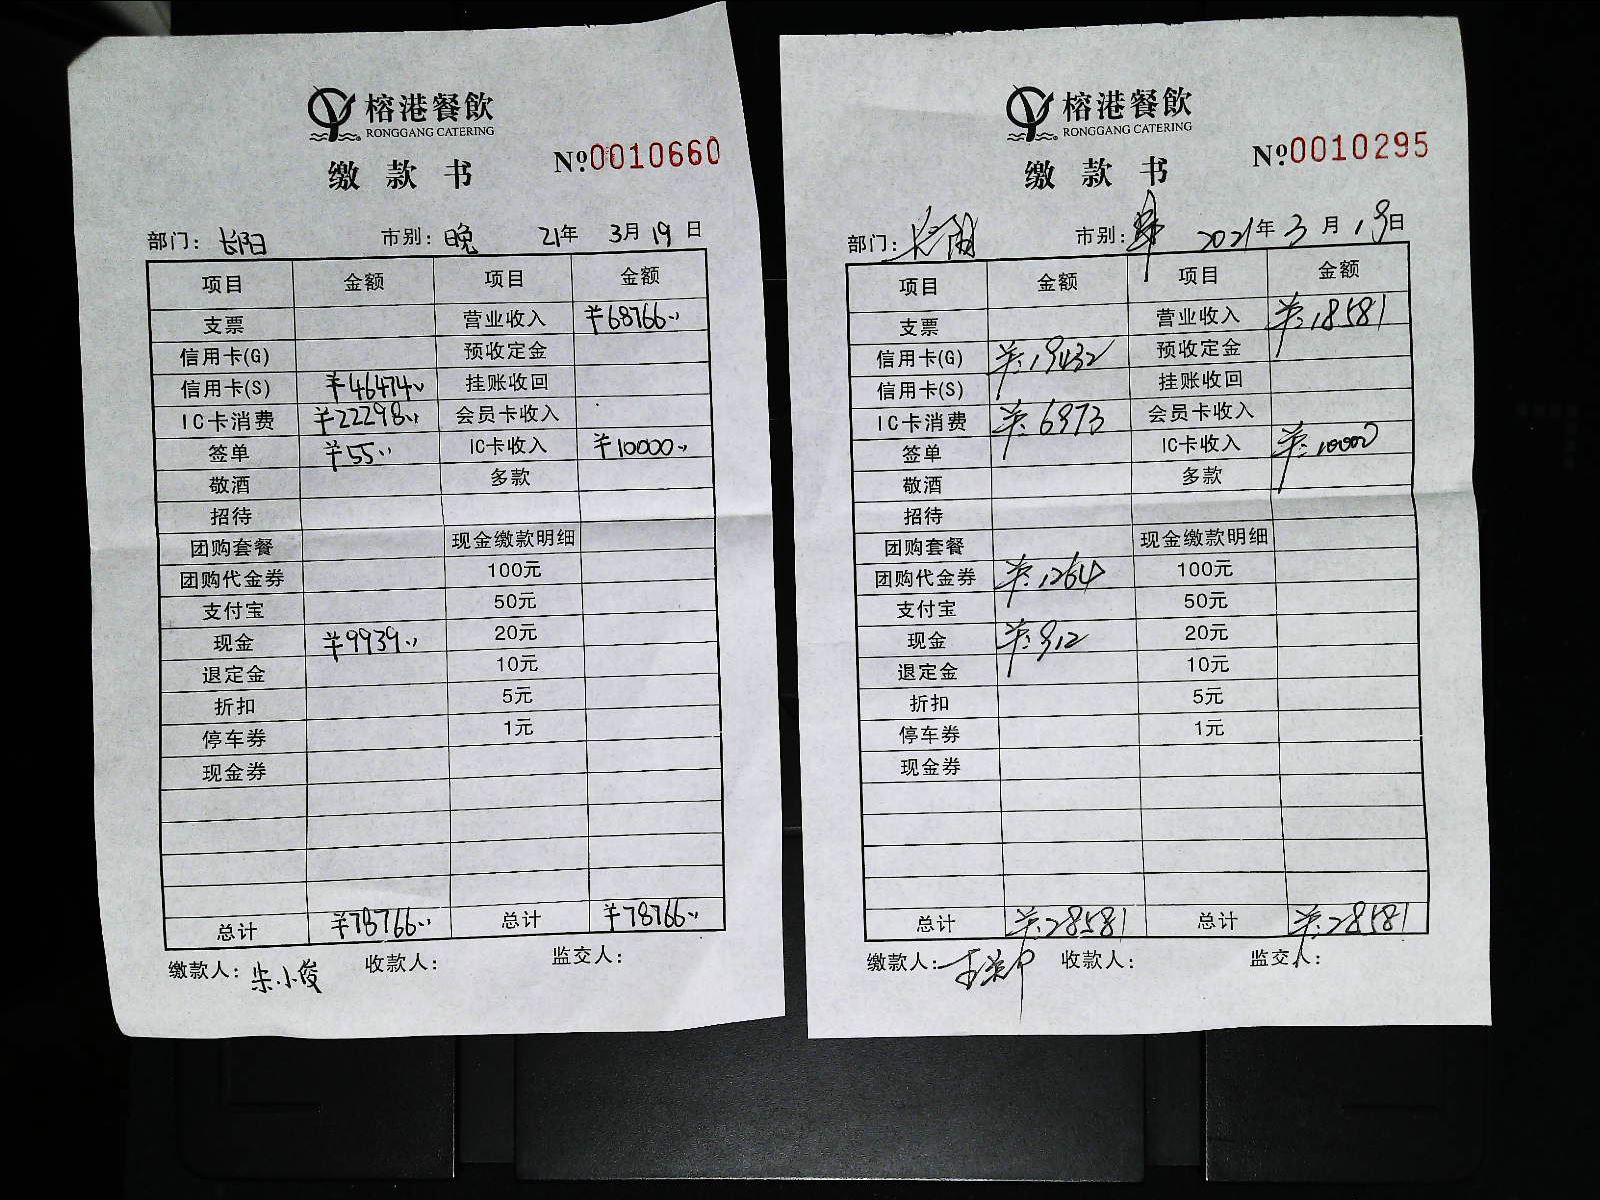 榕港餐飲
RONGGANG CATERING
缴款书
№0010660
部门：长阳 市别：晚 21年 3月 19日
项目 金额 项目 金额
支票 营业收入 ¥68766
信用卡(G) 预收定金
信用卡(S) ¥46474 挂账收回
IC卡消费 ¥22298 会员卡收入
签单 ¥55 IC卡收入 ¥10000
敬酒 多款
招待
团购套餐 现金缴款明细
团购代金券 100元
支付宝 50元
现金 ¥9939 20元
退定金 10元
折扣 5元
停车券 1元
现金券
总计 ¥78766 总计 ¥78766
缴款人：朱小俊 收款人： 监交人：
榕港餐飲
RONGGANG CATERING
缴款书
№0010295
部门：长阳 市别： 2021年 3月 19日
项目 金额 项目 金额
支票 营业收入 ¥:18581
信用卡(G) ¥:19432 预收定金
信用卡(S) 挂账收回
IC卡消费 ¥:6973 会员卡收入
签单 IC卡收入 ¥:10000
敬酒 多款
招待
团购套餐 现金缴款明细
团购代金券 ¥:1264 100元
支付宝 50元
现金 ¥:912 20元
退定金 10元
折扣 5元
停车券 1元
现金券
总计 ¥:28581 总计 ¥:28581
缴款人： 收款人： 监交人：